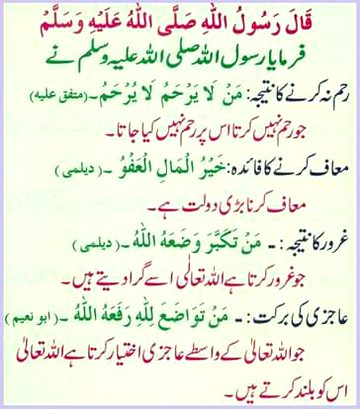 قَالَ رَسُولُ اللهِ صَلَّى اللهُ عَلَيْهِ وَسَلَّمْ
فرمایا رسول اللہ صلی اللہ علیہ وسلم نے
رحم نہ کرنے کا نتیجہ: مَنْ لَا يَرْحَمُ لَا يُرْحَمُ۔ (متفق علیہ)
جو رحم نہیں کرتا اس پر رحم نہیں کیا جاتا۔
معاف کرنے کا فائدہ: خَيْرُ الْمَالِ الْعَفْوُ ۔ (دیلمی)
معاف کرنا بڑی دولت ہے۔
غرور کا نتیجہ: ۔ مَنْ تَكَبَّرَ وَضَعَهُ اللهُ ۔ (دیلمی)
جو غرور کرتا ہے اللہ تعالٰی اسے گرا دیتے ہیں۔
عاجزی کی برکت: ۔ مَنْ تَوَاضَعَ لِلّٰهِ رَفَعَهُ اللهُ ۔ (ابو نعیم)
جو اللہ تعالیٰ کے واسطے عاجزی اختیار کرتا ہے اللہ تعالیٰ
اس کو بلند کرتے ہیں۔